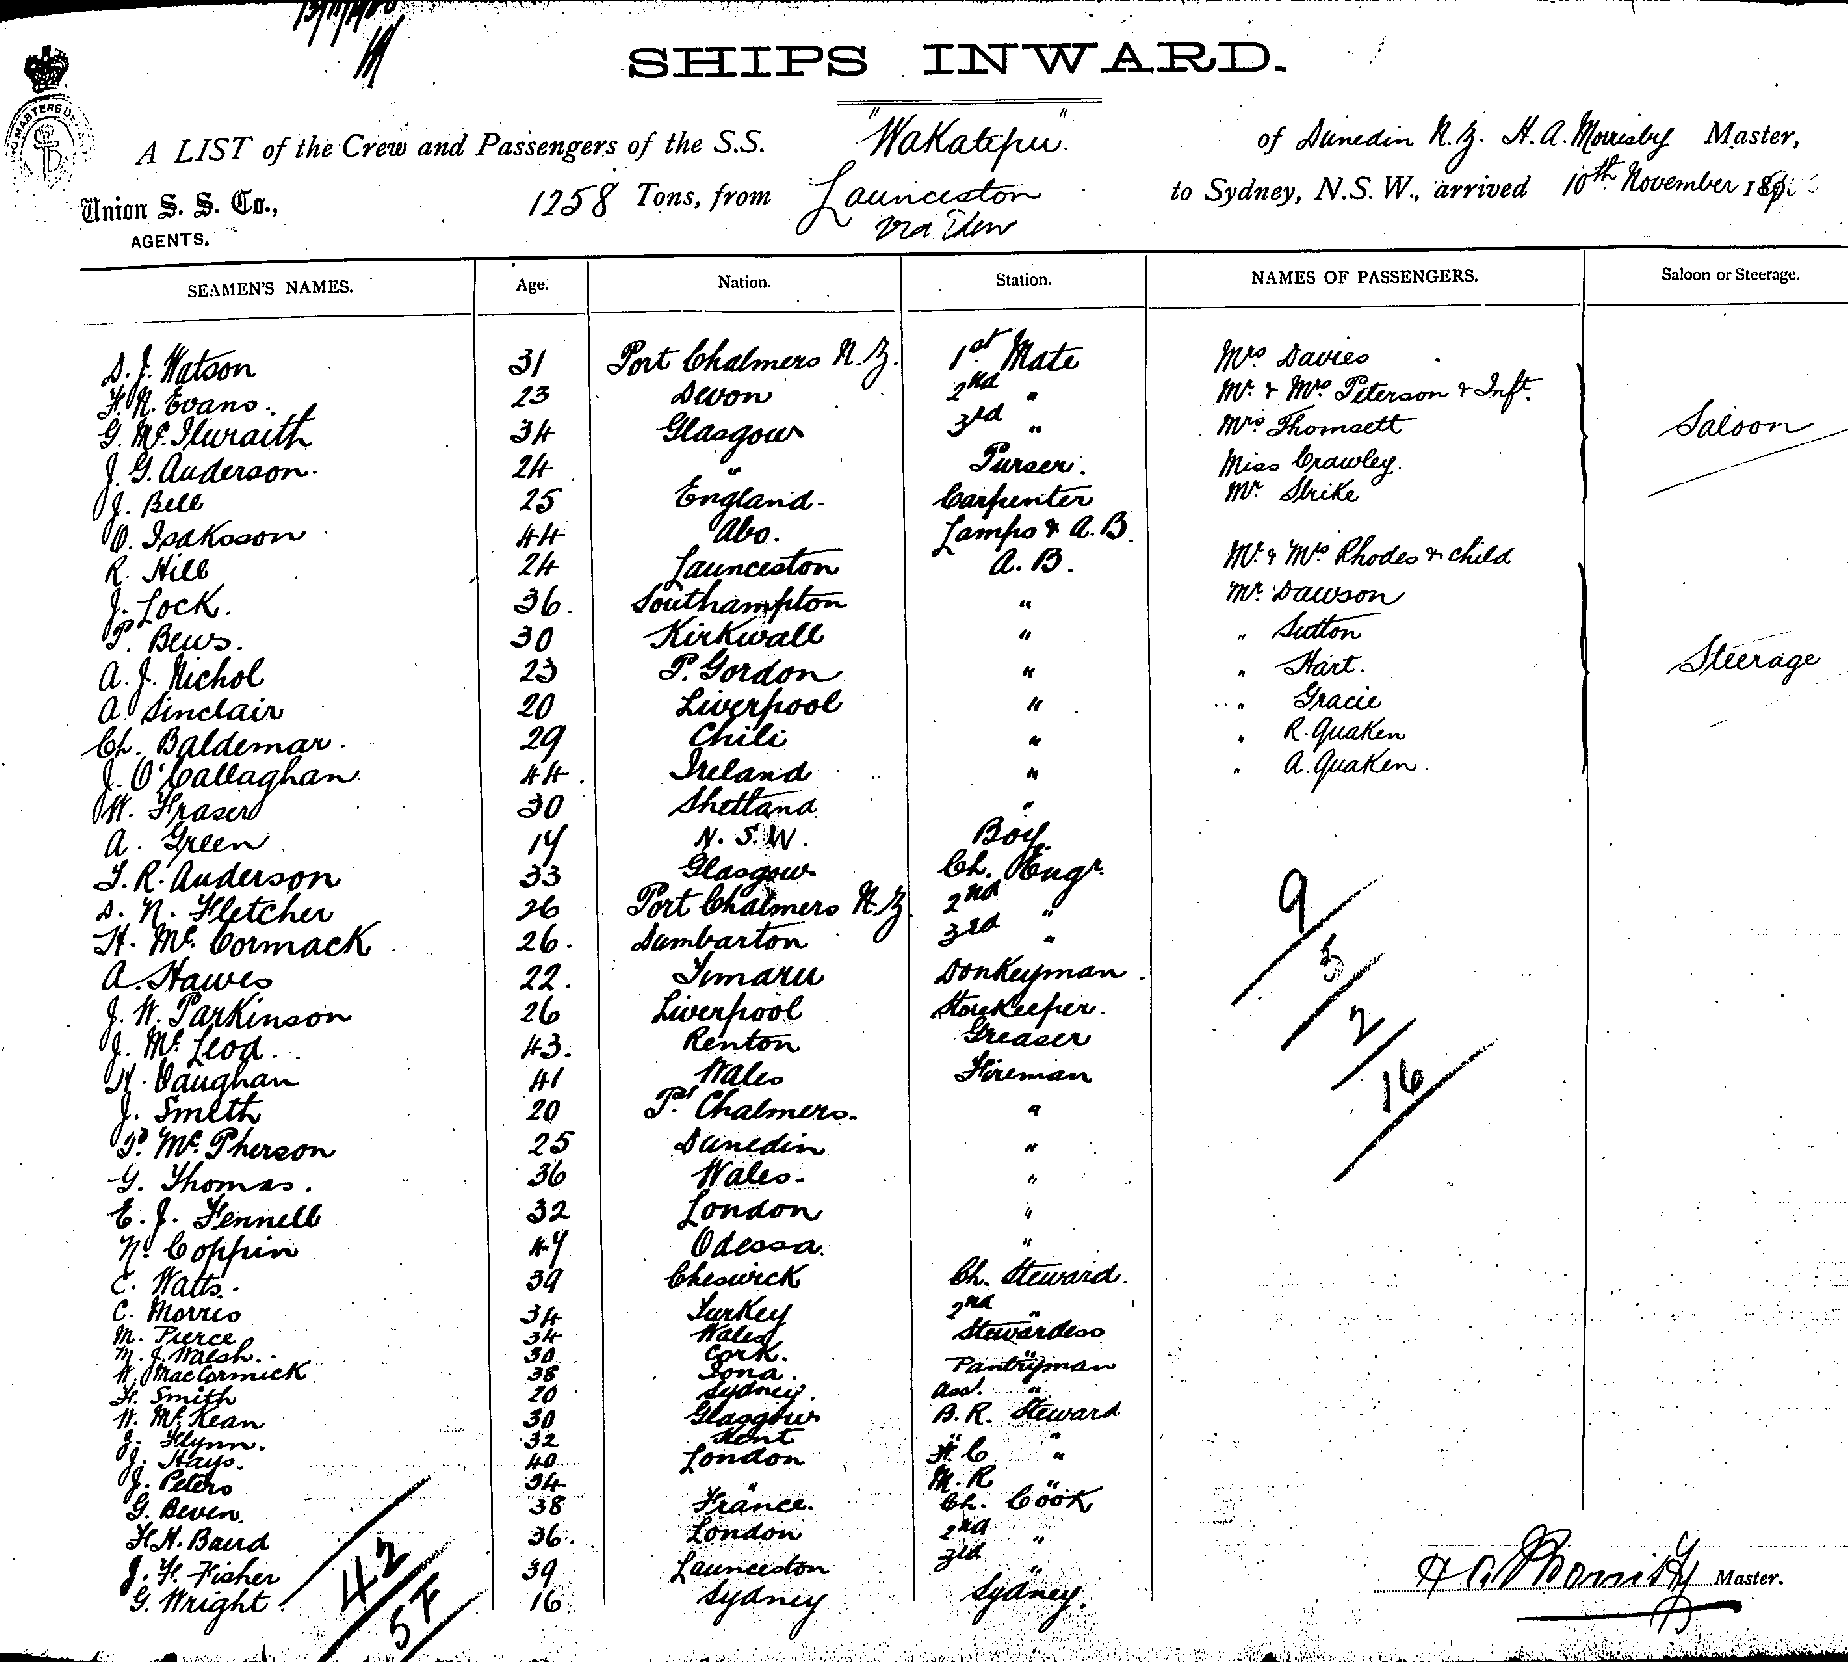 SHIPS INWARD.
A LIST of the Crew and Passengers of the S.S. "Wakatipu" of Dunedin N.Z. H. A. Morrisby Master,
Union S. S. Co., AGENTS. 1258 Tons, from Launceston via Eden to Sydney, N.S.W., arrived 10th November
SEAMEN'S NAMES. Age. Nation. Station. NAMES OF PASSENGERS. Saloon or Steerage.
D. J. Watson 31 Port Chalmers N.Z. 1st Mate Mrs Davies
F. N. Evans. 23 Devon 2nd " Mr. & Mrs Peterson & Inft.
G. Mc.Ilwraith 34 Glasgow 3rd " Mrs Thomsett Saloon
J. G. Anderson. 24 " Purser. Miss Crawley.
J. Bell 25 England. Carpenter Mr. Strike
O. Isaksson 44 Abo. Lamps & A.B.
R. Hill 24 Launceston A.B. Mr. & Mrs Rhodes & child
J. Lock. 36. Southampton " Mr. Dawson
P. Bews. 30 Kirkwall " " Sutton
A. J. Nichol 23 P. Gordon " " Hart. Steerage
A. Sinclair 20 Liverpool " " Gracie
Ch. Baldemar. 29 Chili " " R. Quaken
J. O'Callaghan. 44. Ireland " " A. Quaken.
W. Fraser 30 Shetland "
A. Green 17 N.S.W. Boy.
T. R. Anderson 33 Glasgow Ch. Engr.
D. N. Fletcher 26 Port Chalmers N.Z. 2nd "
H. Mc.Cormack 26. Dumbarton 3rd "
A. Hawes 22. Timaru Donkeyman.
J. W. Parkinson 26 Liverpool Storekeeper.
J. Mc.Leod. 43. Renton Greaser
H. Vaughan 41 Wales Fireman
J. Smith 20 Pt Chalmers. "
P. Mc.Pherson 25 Dunedin "
G. Thomas. 36 Wales. "
E. J. Fennell 32 London "
N. Coppin 47 Odessa. "
C. Watts. 39 Cheswick Ch. Steward.
C. Morris 34 Turkey 2nd "
M. Pierce 34 Wales Stewardess
M. J. Walsh. 30 Cork. "
W. MacCormick 38 Iona. Pantryman
H. Smith 20 Sydney. Asst. "
W. Mc.Kean 30 Glasgow B.R. Steward
J. Flynn. 32 Kent " "
J. Hays. 40 London F.C "
J. Peters 34 " M.R "
G. Beven. 38 France. Ch. Cook
F. H. Baird 36. London 2nd "
J. F. Fisher 39 Launceston 3rd "
G. Wright 16 Sydney Sydney.
9
5
2
16
42
5 F
Master.